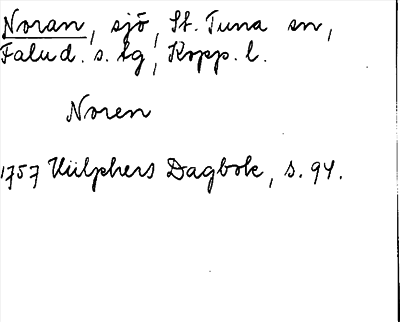 Noran, sjö, St. Tuna sn,
Falu d. s. tg, Kopp. l.
Noren
1757 Hülphers Dagbok, s. 94.